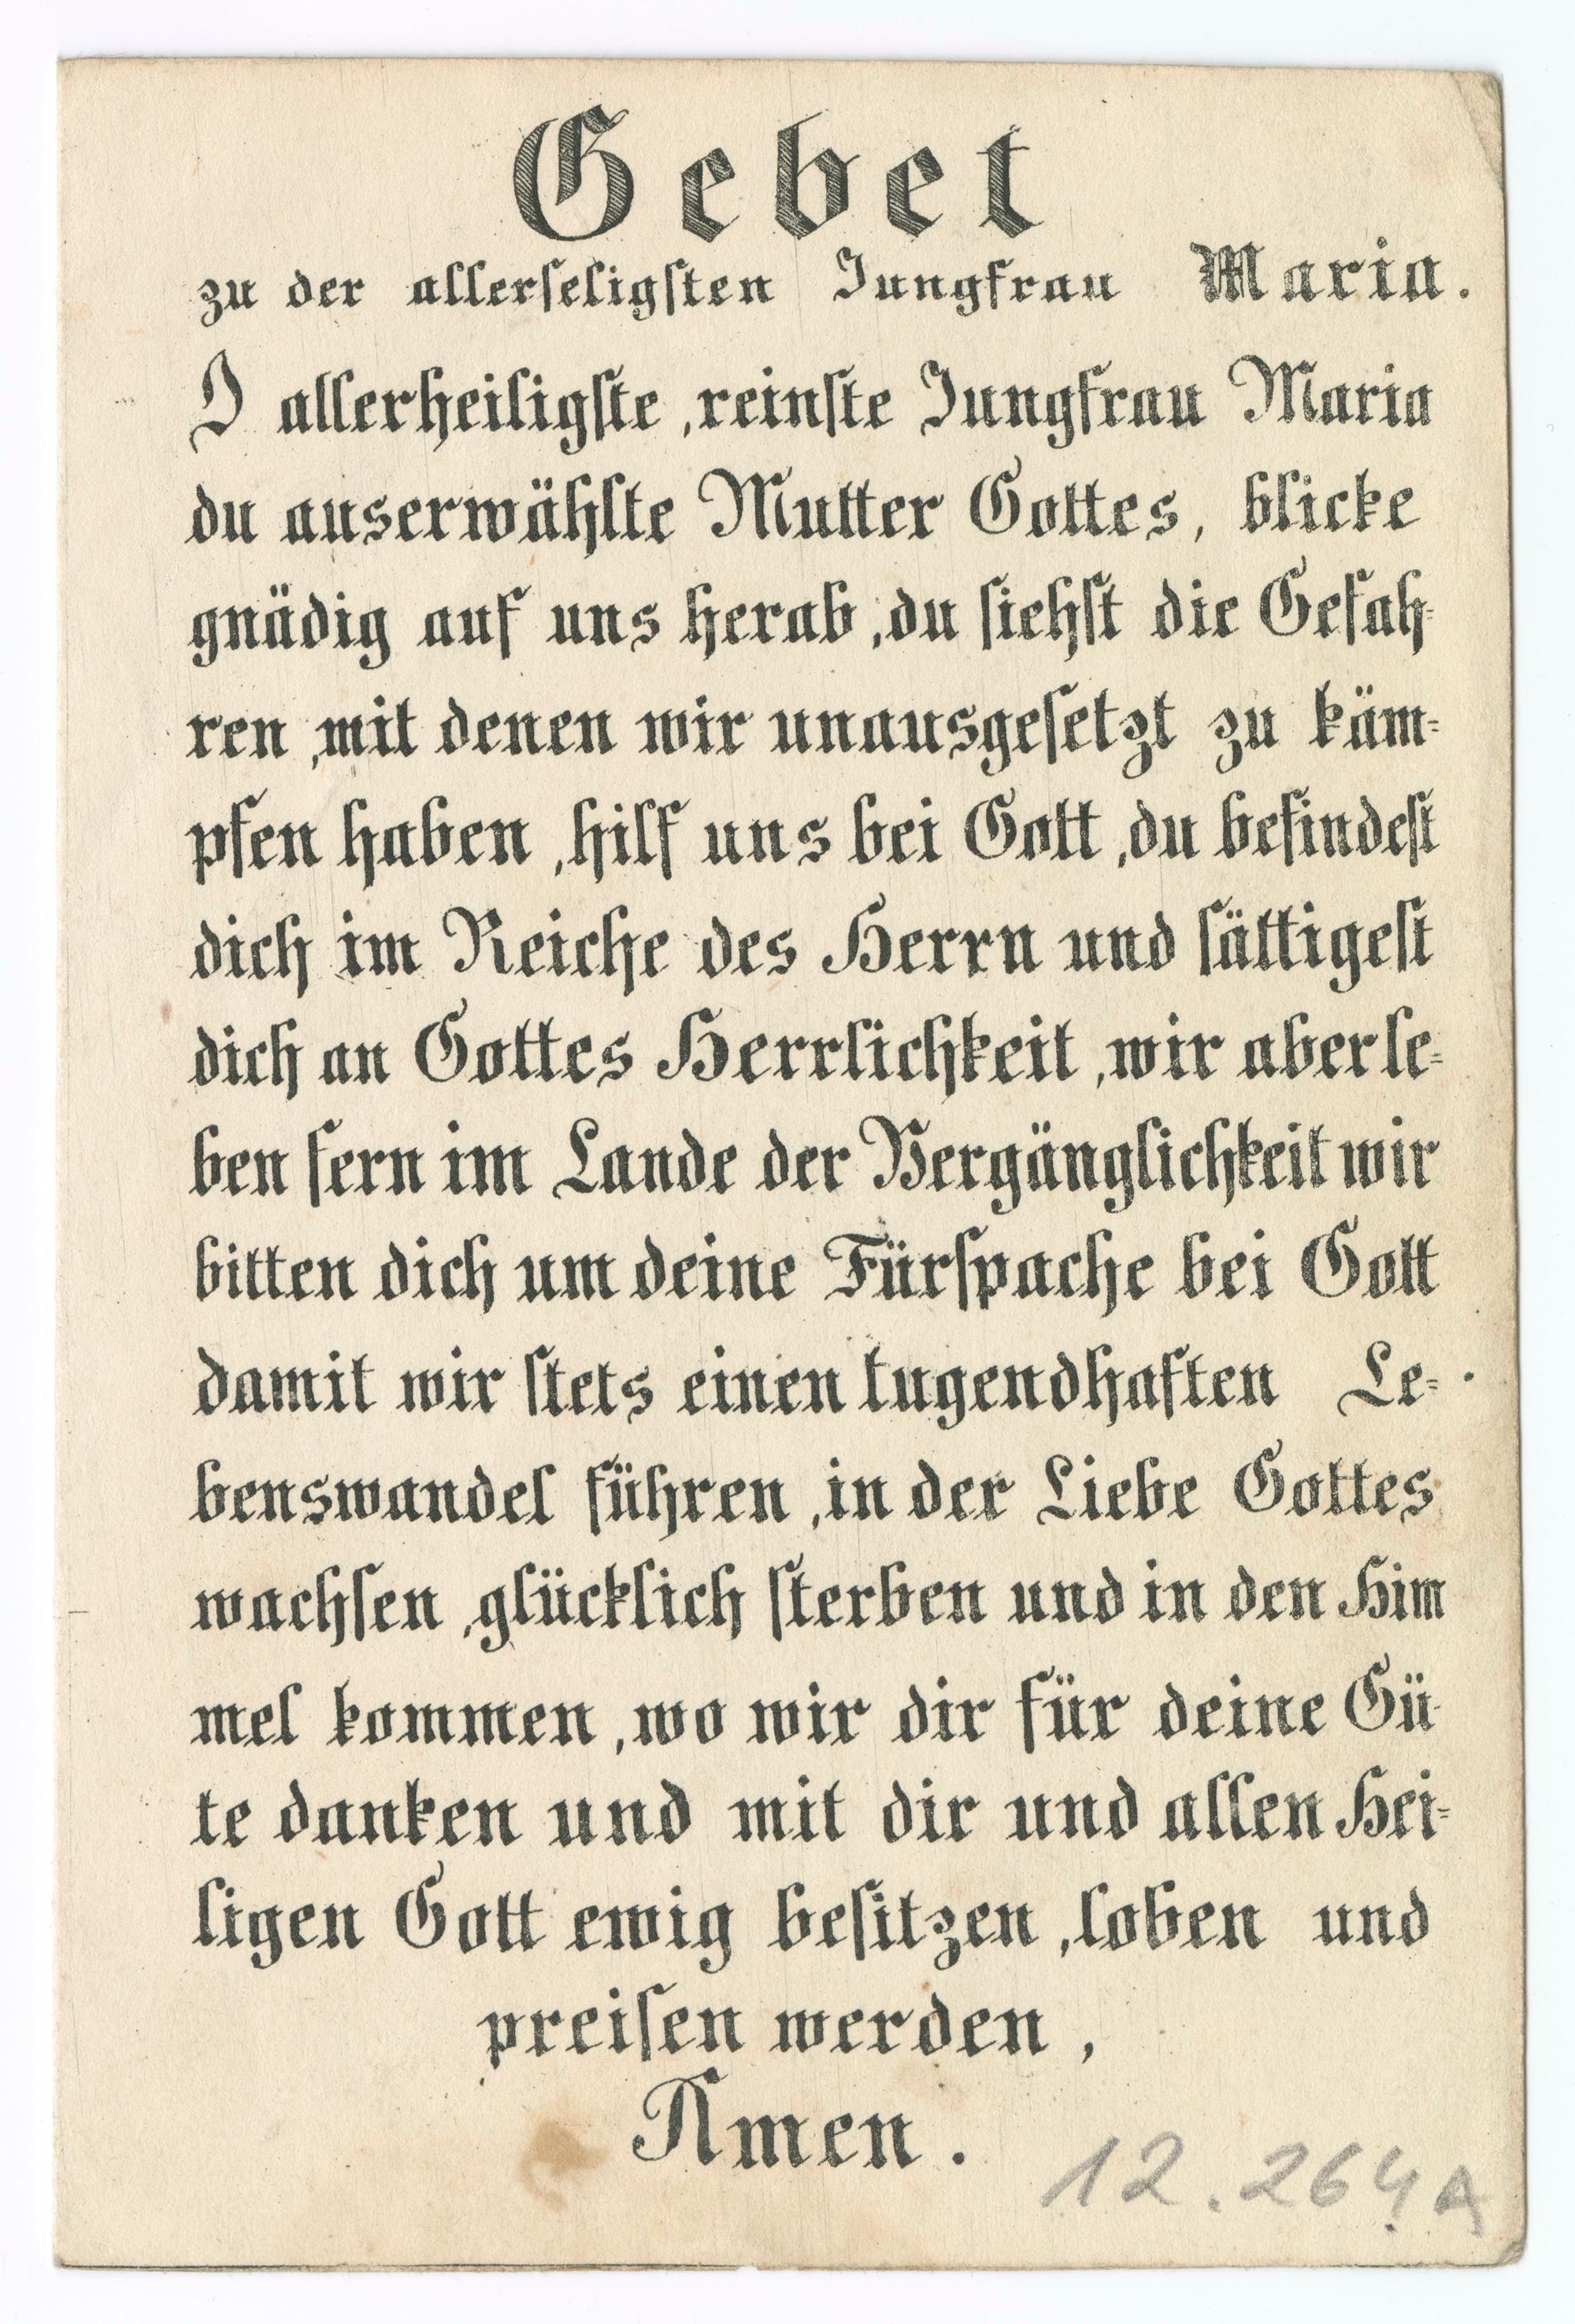 Gebet
zu der allerseligsten Jungfrau Maria.
O allerheiligste, reinste Jungfrau Maria
du auserwählte Mutter Gottes, blicke
gnädig auf uns herab, du siehst die Gefah-
ren, mit denen wir unausgesetzt zu käm-
pfen haben, hilf uns bei Gott, du befindest
dich im Reiche des Herrn und sättigest
dich an Gottes Herrlichkeit, wir aber le-
ben fern im Lande der Vergänglichkeit wir
bitten dich um deine Fürspache bei Gott
damit wir stets einen tugendhaften Le-
benswandel führen, in der Liebe Gottes
wachsen, glücklich sterben und in den Him
mel kommen, wo wir dir für deine Gü-
te danken und mit dir und allen Hei-
ligen Gott ewig besitzen, loben und
preisen werden,
Amen.
12.264A